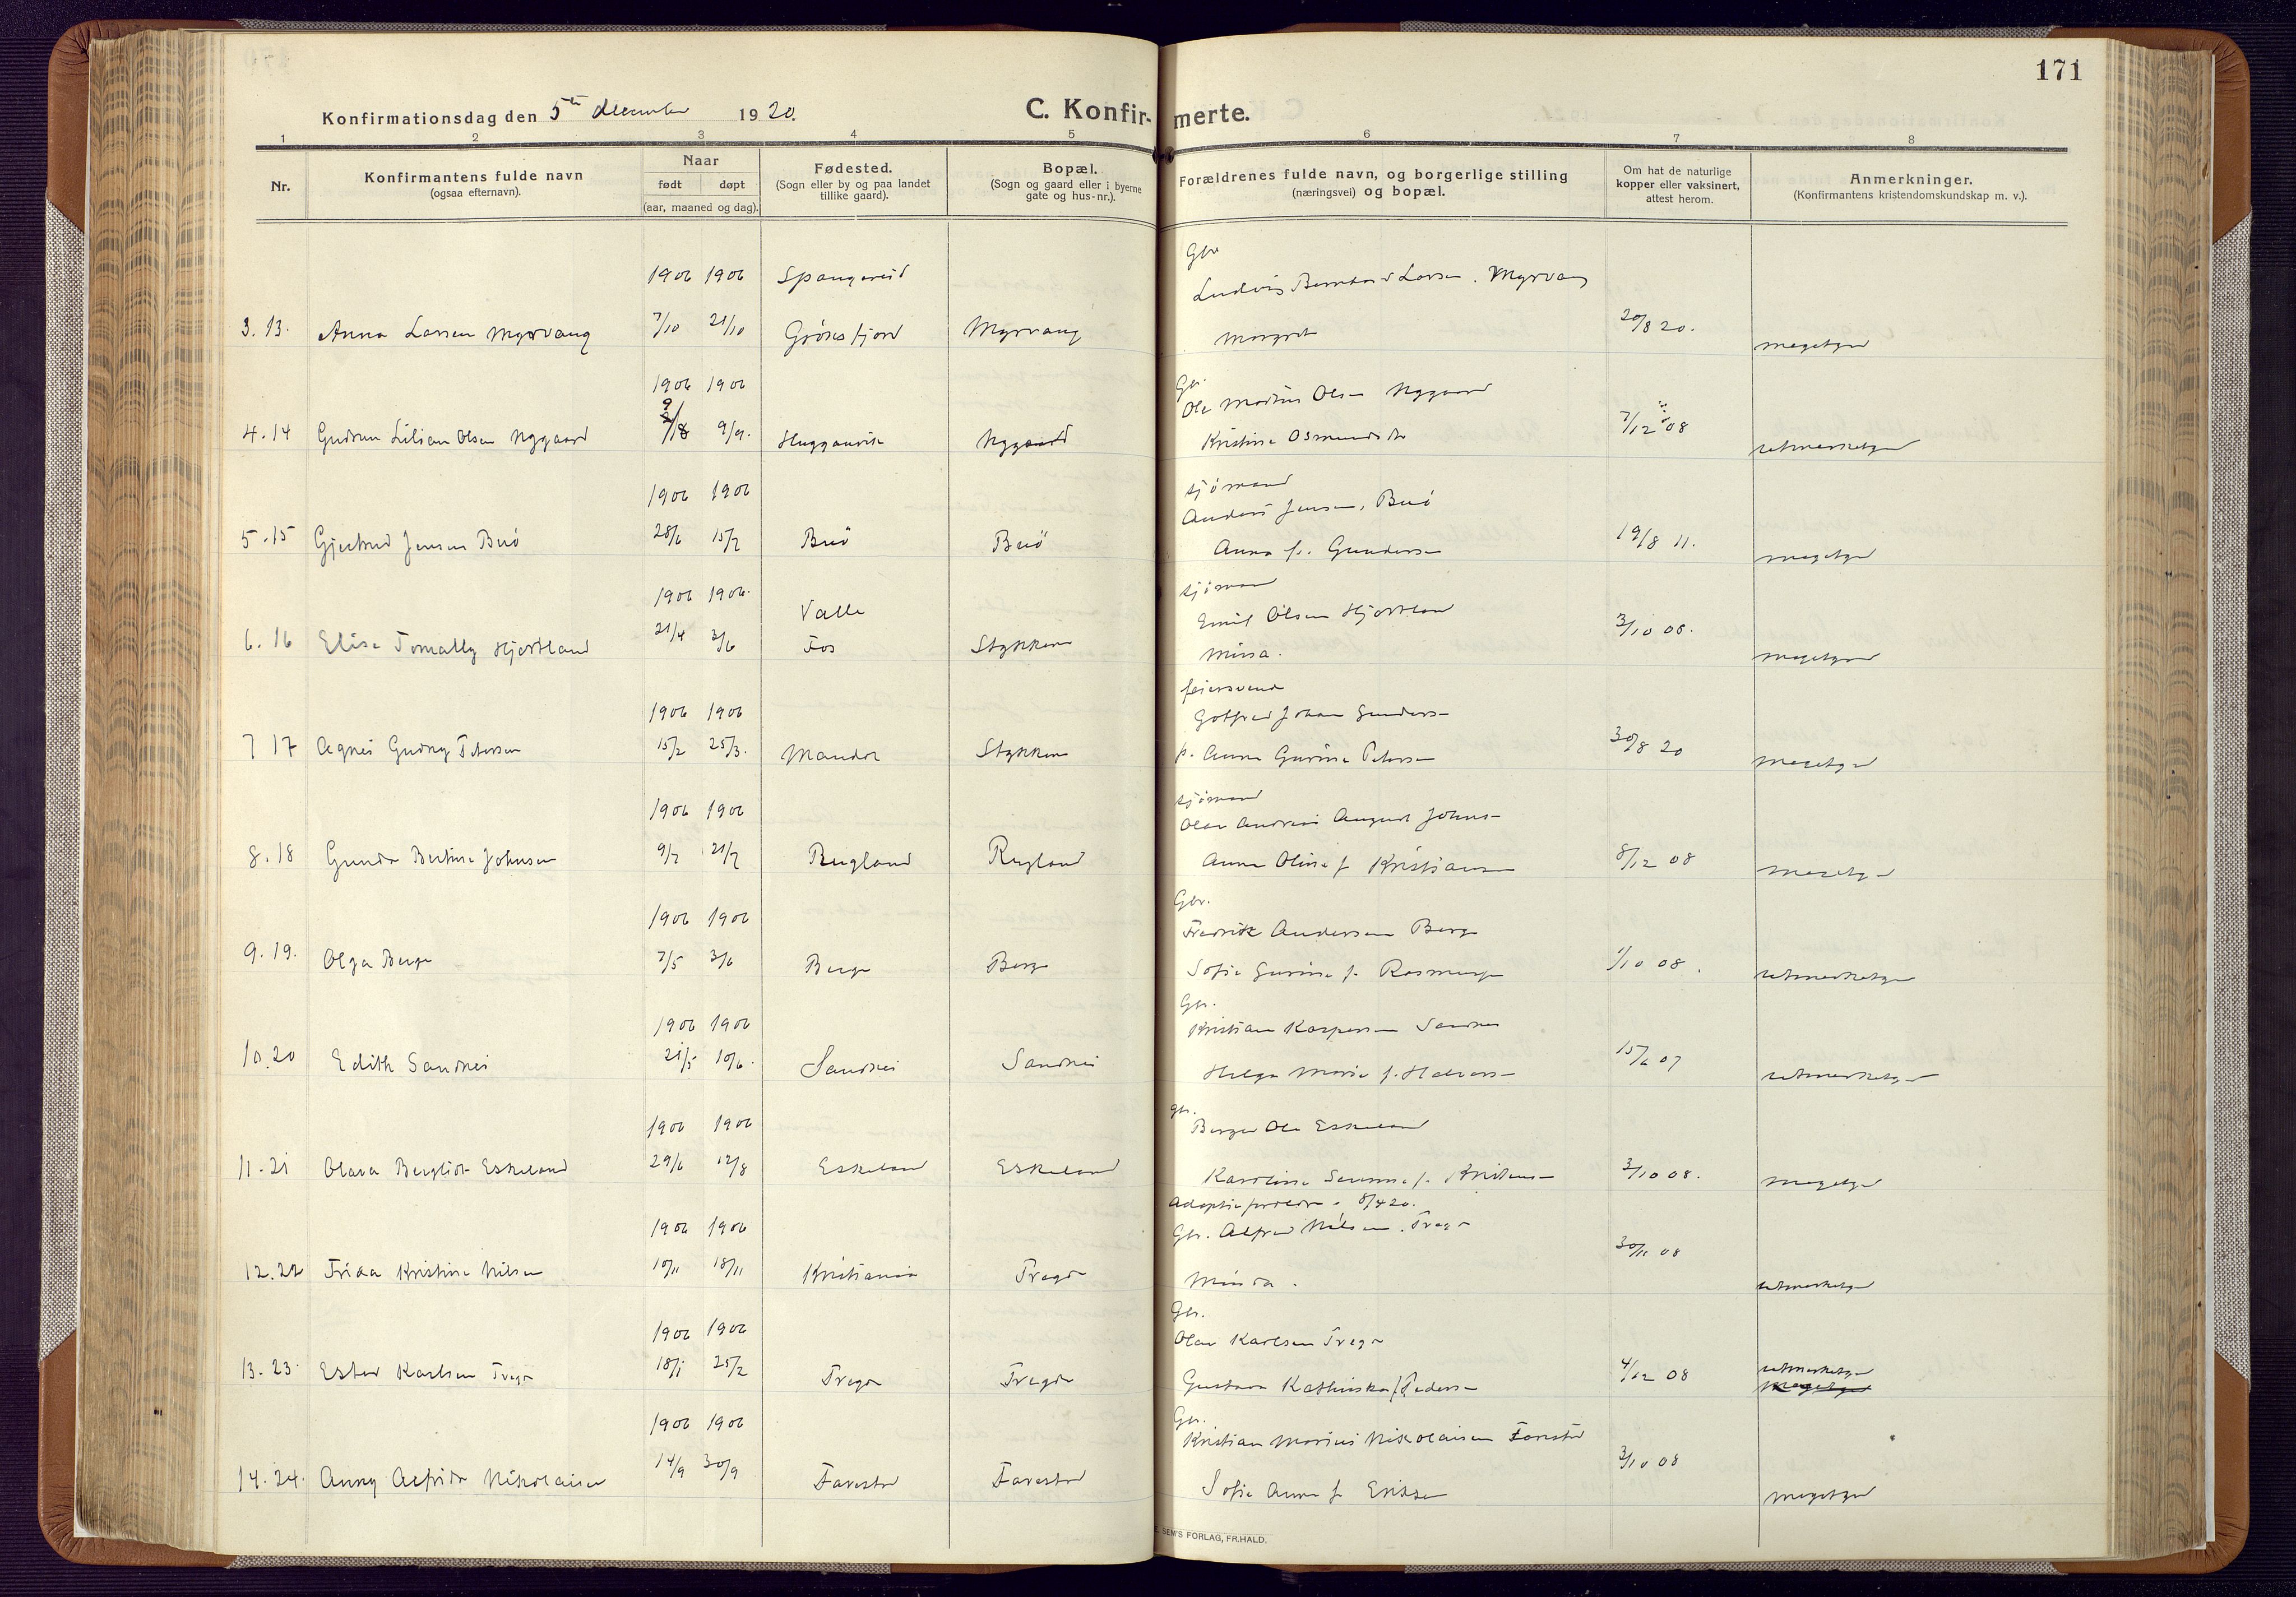 171
Konfirmationsdag den 5te december 1920.
C. Konfirmerte.
1 2 3 4 5 6 7 8
Nr.
Konfirmantens fulde navn
(ogsaa efternavn).
Naar
født døpt
(aar, maaned og dag).
Fødested.
(Sogn eller by og paa landet
tillike gaard).
Bopæl.
(Sogn og gaard eller i byerne
gate og hus-nr.).
Forældrenes fulde navn, og borgerlige stilling
(næringsvei) og bopæl.
Om hat de naturlige
kopper eller vaksinert,
attest herom.
Anmerkninger.
(Konfirmantens kristendomskundskap m. v.).
Gbr
1906 1906 Spangereid Ludvig Bernhard Larsen. Myrvang
3. 13. Anna Larsen Myrvang 7/10 21/10 Grøsfjord Myrvang Margret 20/8 20. megetgod
Gbr.
1906 1906 Ole Martin Olsen Nygaard
9
4. 14 Gudrun Lilian Olsen Nygaard /8 9/9. Nygaard Kristine Osmundsdtr 7/12 08 utmerketgod
sjømand
1906 1906 Anders Jensen, Buø
5. 15 Gjertrud Jensen Buø 28/6 15/7 Buø Buø Anna f. Gundersen 19/8 11. megetgod
sjømand
1906 1906. Valle Emil Olsen Hjortland
6. 16 Elise Tomally Hjortland 21/4 3/6 Fos Stykken Mina. 3/10 08. megetgod
feiersvend
1906 1906 Gotfred Johan Gundersen
7 17 Agnes Gudny Petersen 15/2 25/3. Mandal Stykken p. Anna Gurine Petersen 30/8 20 megetgod
sjømand
1906 1906 Olav Andreas August Johnsen
8. 18 Gunda Bertine Johnsen 9/7 21/7 Rugland Rugland Anna Oline f Kristiansen 8/12 08 megetgod
Gbr.
1906 1906 Fredrik Andersen Berge
9. 19. Olga Berge 7/5 3/6 Berge Berge Sofie Gurine f. 1/10 08. utmerketgod
Gbr.
1906 1906 Kristian Kaspersen Sandnes
10. 20 Edith Sandnes 21/5 10/6. Sandnes Sandnes Helga Marie f. Halvorsen 15/6 07 utmerketgod
gbr.
1906 1906 Berge Ole Eskeland
11. 21 Olava Bergliot Eskeland 29/6 12/8 Eskeland Eskeland Karoline f. Kristensen 3/10 08. megetgod
Adoptivforældre 8/4 20.
1906 1906 Gbr. Alfred Nilsen. Tregde
12. 22 Frida Kristine Nilsen 10/11 18/11 Kristiania Tregde Minda. 30/11 08 utmerketgod
Gbr.
1906 1906 Olav Karlsen Tregde
13. 23. Ester Karlsen Tregde 18/1 25/2 Tregde Tregde Gustava Kathinka f. Pedersen 4/12 08 utmerketgod
megetgod
Gbr.
1906 1906 Kristian Marius Nikolaisen Farestad
14. 24. Anny Alfrida Nikolaisen 14/9 30/9 Farestad Farestad Sofie Anna f Eriksen 3/10 08 megetgod
SEM'S FORLAG, FR.HALD.